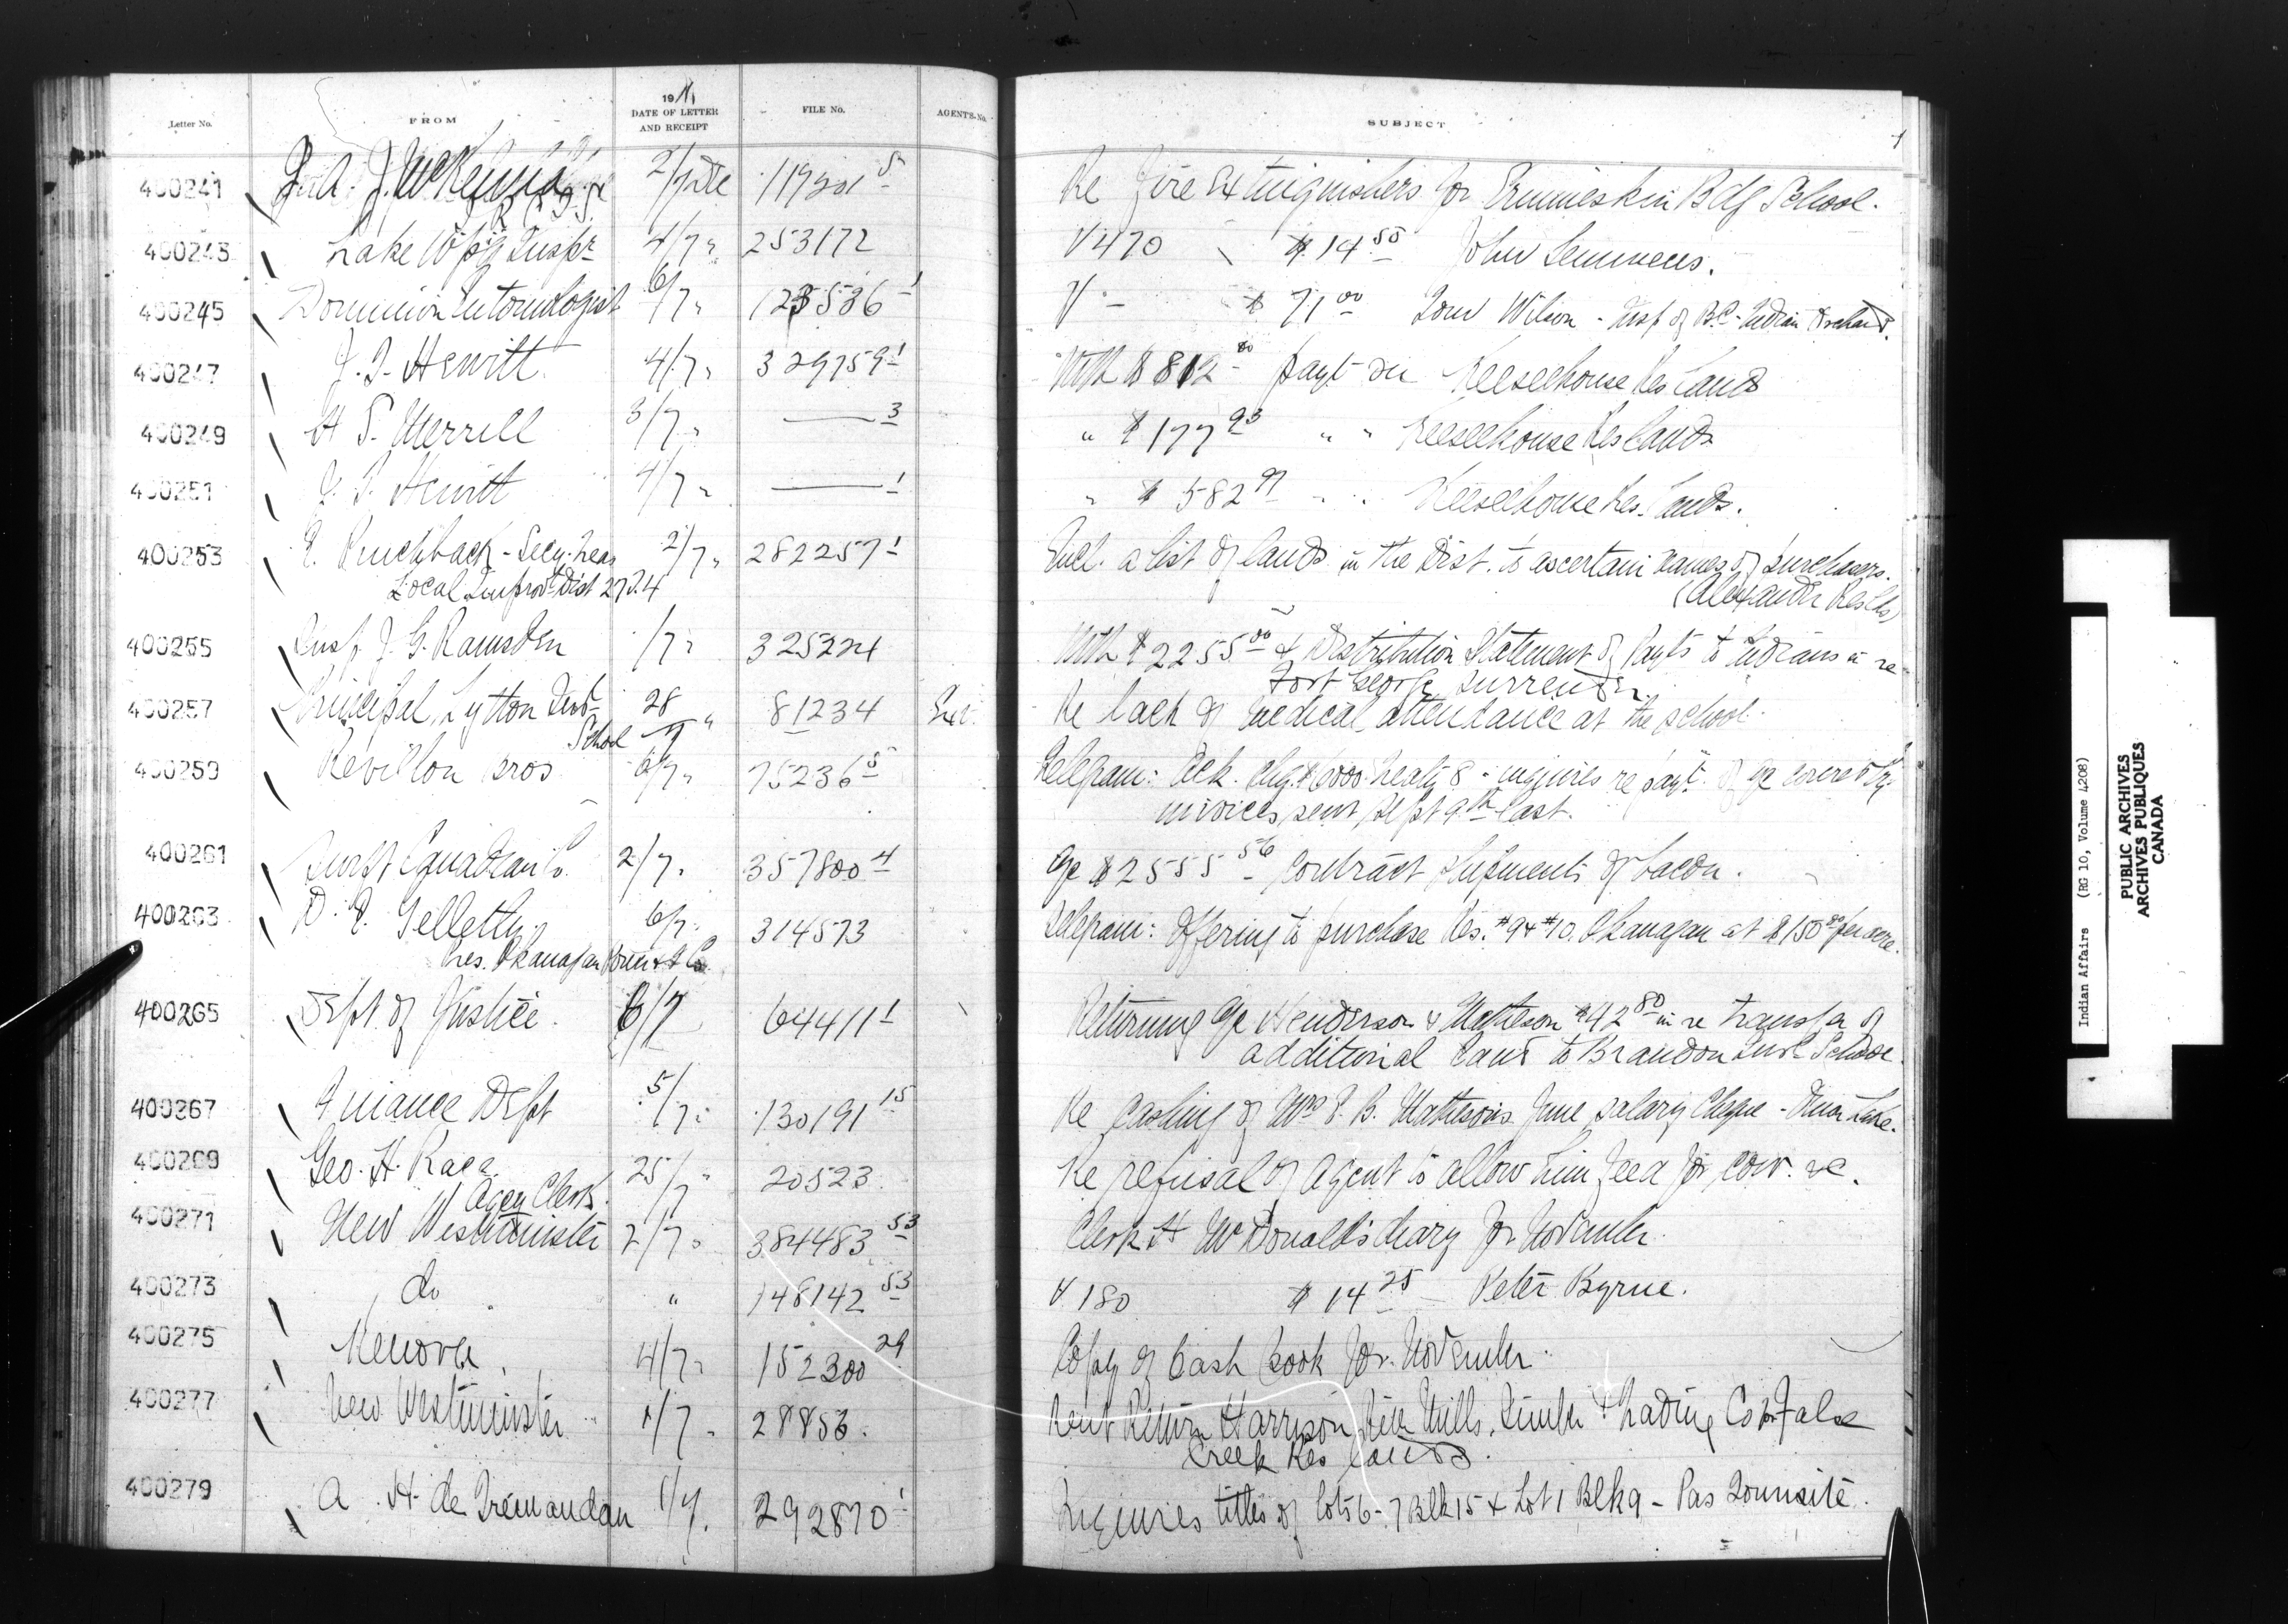 Letter No. FROM 1911 DATE OF LETTER AND RECEIPT FILE No. AGENTS-No. SUBJECT
1
400241 J. A. J. McKenna 2/7 Dec 119201 5 Re Fire Extinguishers for Ermineskin Bdg School.
400243 Lake Wpg Inspr 4/7 " 253172 V 470 $14 55 John Semmens.
400245 Dominion Entomologist 6/7 " 123536 1 V — $71 00 Tom Wilson - Insp of B.C. Indian Orchards.
400247 J. T. Hewitt 4/7 " 329759 1 With $812 80 payt on Keeseekouse Res Lands
400249 H S. Merrill 3/7 " — 3 " $177 93 " " Keeseekouse Res Lands
400251 J. T. Hewitt 4/7 " — 1 " $582 97 " " Keeseekouse Res. Lands.
400253 Pinchback - Secy-Treas 2/7 " 282257 1 Encl. a list of lands in the Dist. to ascertain names of purchasers.
Local Improvt Dist 27.T.4 (Alexander Res Lds)
400255 Insp J. G. Ramsden 1/7 " 325224 With $2255 00 & Distribution Statement of Payts to Indians in re
Fort George surrender.
400257 Principal, Lytton Indl 28 " 81234 Re lack of medical attendance at the school.
School 7
400259 Revillon Bros 6/7 " 75236 5 Telegram: Ack. chq. $6000 Treaty 8 - inquires re payt of a/c covered by
invoices sent Sept 9th last.
400261 Canadian Co. 2/7 " 357800 4 a/c $2555 56 - Contract shipments of bacon.
400263 D. Gellatly 6/7 " 314573 Telegram: Offering to purchase Res. #9 & #10. Okanagan at $150 00 per acre.
Pres. Okanagan Co.
400265 Dept. of Justice. 6/7 64411 1 Returning a/c Henderson & Matheson $42 80 in re transfer of
additional land to Brandon Indl School.
400267 Finance Dept 5/7 " 130191 15 Re Cashing of Mrs Matheson's June salary Cheque - Onion Lake.
400269 Geo. H. Race 25/7 " 20523 Re refusal of Agent to allow him feed for cow. &c.
Agcy Clerk.
400271 New Westminster 2/7 " 384483 53 Clerk H McDonald's diary for November.
400273 do " 148142 53 V 180 $14 25 — Peter Byrne.
400275 Kenora 4/7 " 152300 29 Copy of Cash Book for November.
400277 New Westminster 1/7 " 28856. Rent Return Harrison River Mills, Timber & Trading Co for False
Creek Res Lands.
400279 A. H. de Trémaudan 1/7. 292870 1 Inquires titles of lots 6-7 Blk 15 & Lot 1 Blk 9 - Pas Townsite.
Indian Affairs (RG 10, Volume 4208)
PUBLIC ARCHIVES
ARCHIVES PUBLIQUES
CANADA